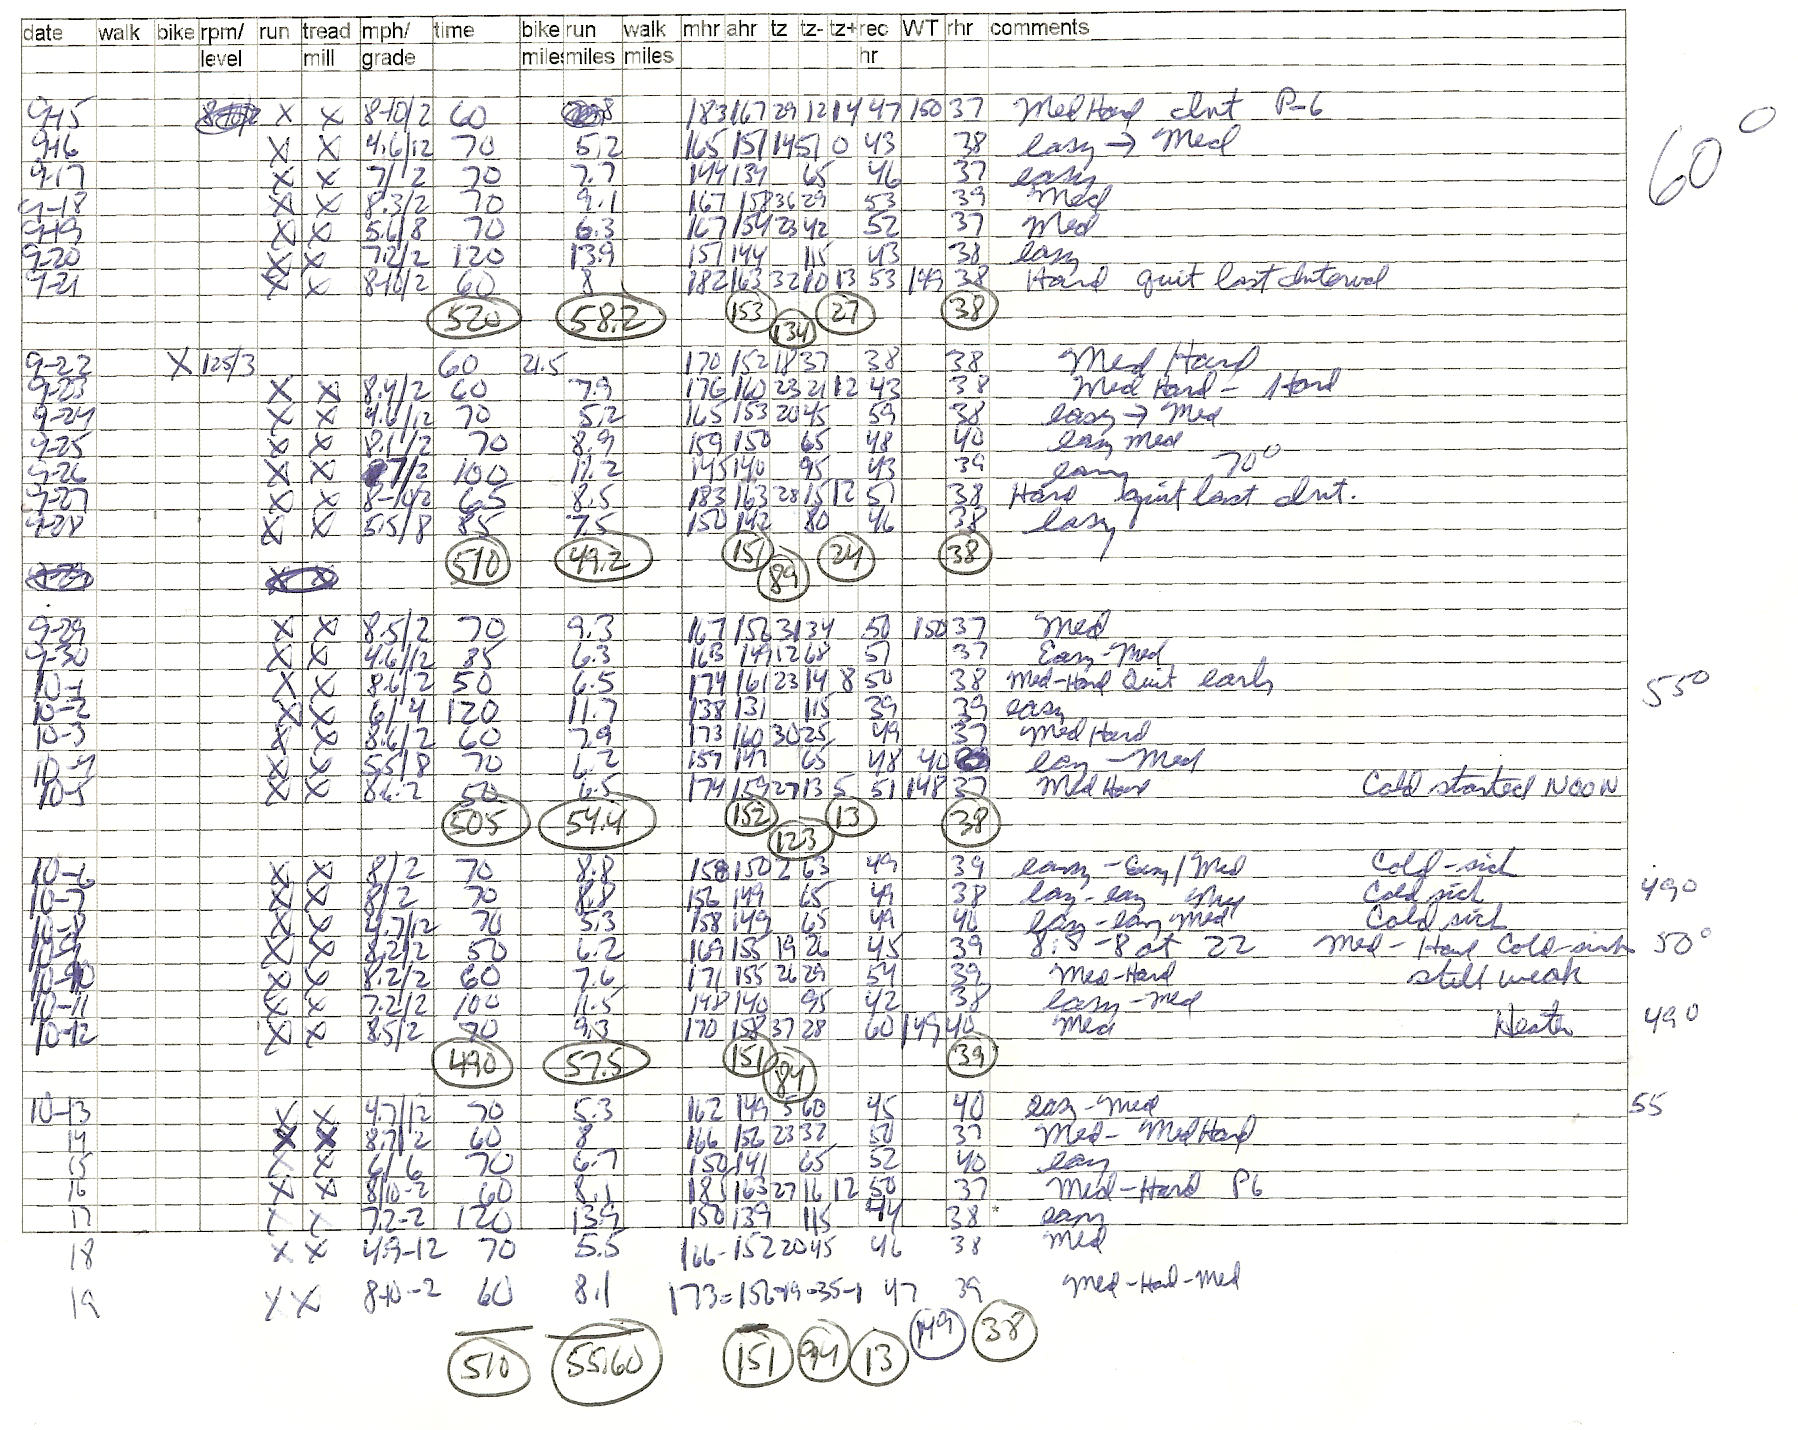 date walk bike rpm/ run tread mph/ time bike run walk mhr ahr tz tz- tz+ rec WT rhr comments
level mill grade miles miles miles hr
9-15 X X 8-10/2 60 8 183 167 29 12 14 47 150 37 Med Hard Int P-6
60°
9-16 X X 4.6/12 70 5.2 165 151 14 51 0 43 38 easy → Med
9-17 X X 7/2 70 7.7 144 134 65 46 37 easy
9-18 X X 8.3/2 70 9.1 167 158 36 29 53 39 Med
9-19 X X 5.6/8 70 6.3 167 154 23 42 52 37 Med
9-20 X X 7.2/2 120 13.9 151 144 115 43 38 easy
9-21 X X 8-10/2 60 8 182 163 32 10 13 53 149 38 Hard quit last Interval
520 58.2 153 134 27 38
9-22 X 125/3 60 21.5 170 152 18 37 38 38 Med Hard
9-23 X X 8.4/2 60 7.9 176 160 23 21 12 43 38 Med Hard - Hard
9-24 X X 4.6/12 70 5.2 165 153 20 45 59 38 easy → Med
9-25 X X 8.1/2 70 8.9 159 150 65 48 40 easy Med
9-26 X X 7/2 100 11.2 145 140 95 43 39 easy 70°
9-27 X X 8-10/2 65 8.5 183 163 28 15 12 51 38 Hard quit last Int.
9-28 X X 5.5/8 85 7.5 150 142 80 46 38 easy
510 49.2 151 89 24 38
9-29 X X 8.5/2 70 9.3 167 156 31 34 50 150 37 Med
9-30 X X 4.6/12 85 6.3 163 149 12 68 51 37 Easy-Med
10-1 X X 8.6/2 50 6.5 174 161 23 14 8 50 38 Med-Hard Quit early 55°
10-2 X X 6/4 120 11.7 138 131 115 39 39 easy
10-3 X X 8.6/2 60 7.9 173 160 30 25 49 37 Med Hard
10-4 X X 5.5/8 70 6.2 157 147 65 48 40 easy - Med
10-5 X X 8.6-2 50 6.5 174 159 27 13 5 51 148 37 Med Hard Cold started NOON
505 54.4 152 123 13 38
10-6 X X 8/2 70 8.8 158 150 2 63 49 39 easy - Easy/Med Cold-sick
10-7 X X 8/2 70 8.8 156 149 65 49 38 easy-easy Med Cold sick 49°
10-8 X X 4.7/12 70 5.3 158 149 65 49 40 easy-easy Med Cold sick
10-9 X X 8.2/2 50 6.2 169 155 19 26 45 39 8.5-8 at 22 Med-Hard Cold-sick 50°
10-10 X X 8.2/2 60 7.6 171 155 26 29 54 39 Med-Hard still weak
10-11 X X 7.2/2 100 11.5 148 140 95 42 38 easy-Med
10-12 X X 8.5/2 70 9.3 170 158 37 28 60 149 40 Med Heater 49°
490 57.5 151 84 39
10-13 X X 4.7/12 70 5.3 162 149 5 60 45 40 easy-Med 55
14 X X 8.7/2 60 8 166 156 23 32 50 37 Med-Med Hard
15 X X 6/6 70 6.7 150 141 65 52 40 easy
16 X X 8/10-2 60 8.1 181 163 27 16 12 50 37 Med-Hard P6
17 X X 7.2-2 120 13.9 150 139 115 44 38 easy
18 X X 4.9-12 70 5.5 166-152 20 45 46 38 Med
19 X X 8-10-2 60 8.1 173-156-19-35-1 47 39 Med-Hard-Med
510 55.60 151 94 13 149 38